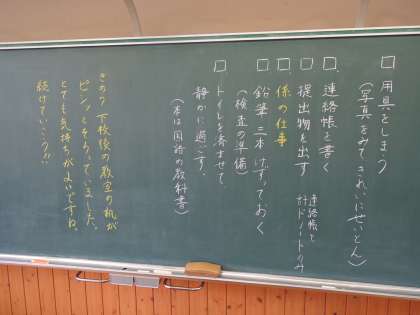 □用具をしまう
（写真をみてきれいにせいとん）
□連絡帳を書く
□提出物を出す
連絡帳と
計ドノートのみ
□係の仕事
□鉛筆三本けずっておく
（検査の準備）
□トイレを済ませて、
静かに過ごす。
（本は国語の教科書）
きのう下校後の教室の机が
ピシッとそろっていました。
とても気持ちがよいですね。
続けていこう!!